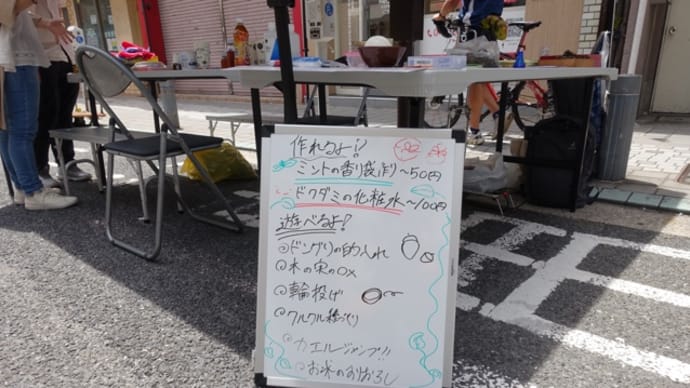 作れるよ!
ミントの香り袋作り〜50円
ドクダミの化粧水〜100円
遊べるよ!
◎ドングリの的入れ
◎木の実の○×
◎輪投げ
◎クルクル
◎カエルジャンプ!!
◎お米のすりおろし